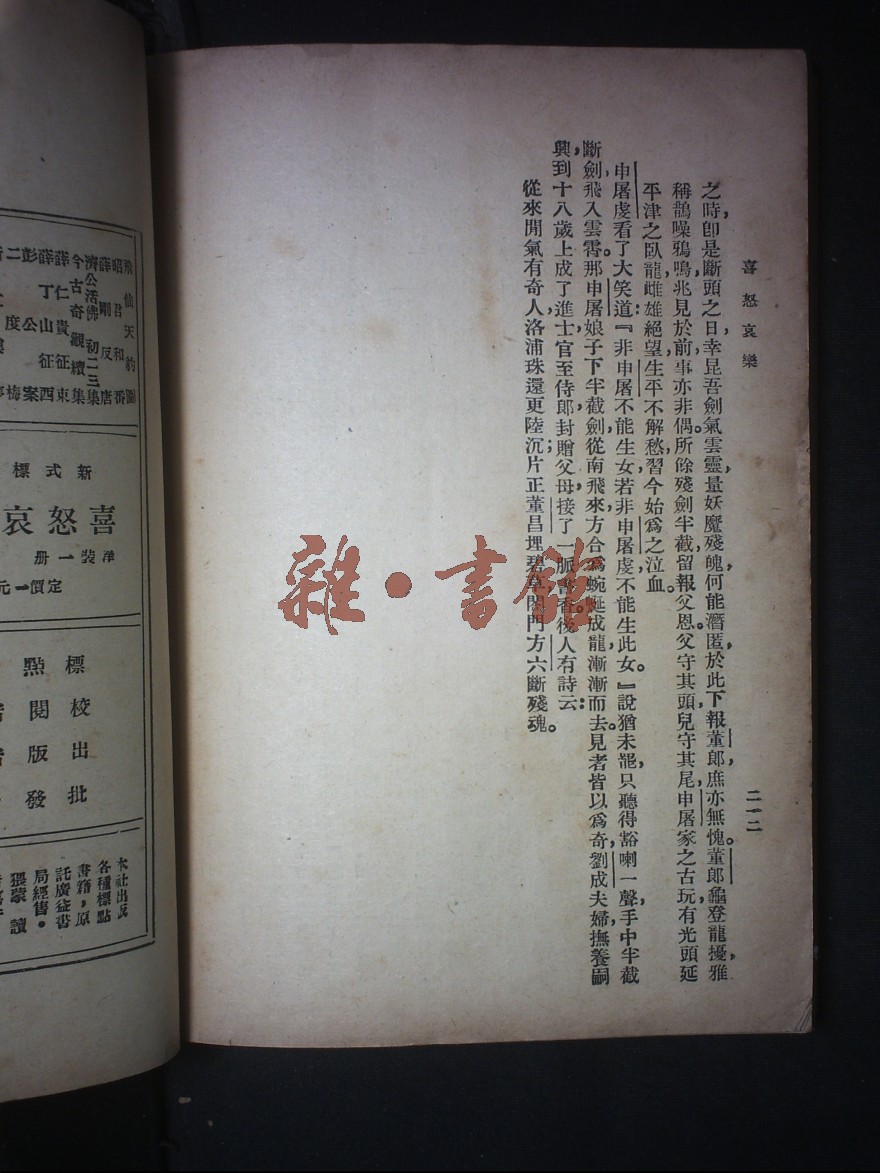 喜怒哀樂
二一二
之時，卽是斷頭之日，幸昆吾劍氣雲靈，量妖魔殘魄，何能潛匿於此，下報董郎，庶亦無愧。董郎龜登龍擾，雅
稱鵲噪鴉鳴，兆見於前，事亦非偶。所餘殘劍半截，留報父恩。父守其頭，兒守其尾，申屠家之古玩，有光頭延
平津之臥龍，雌雄絕望，生平不解愁習，今始爲之泣血。
申屠虔看了大笑道：『非申屠不能生女，若非申屠虔，不能生此女。』說猶未罷，只聽得豁喇一聲，手中半截
斷劍，飛入雲霄。那申屠娘子下半截劍，從南飛來，方合爲蜿蜒成龍，漸漸而去。見者皆以爲奇，劉成夫婦，撫養嗣
興，到十八歲上成了進士，官至侍郎，封贈父母，接了一脈書香。後人有詩云：
從來閒氣有奇人，洛浦珠還更陸沉；片正董昌埋碧草，閉門方六斷殘魂。
飛仙天豹圖
昭君和番
薛剛反唐
濟公活佛初二三集
今古奇觀續集
薛仁貴征東
薛丁山征西
彭公案
二度梅
新式標
喜怒哀
洋裝一册
定價一元
標點
校閱
出版
批發
本社出版
各種標點
書籍，原
託廣益書
局經售。
猥蒙讀
雜·書館